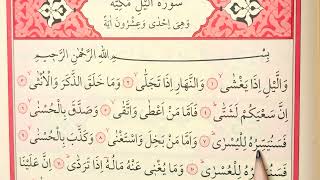 سُورَةُ الَّيْلِ مَكِّيَّةٌ
وَهِيَ اِحْدٰى وَعِشْرُونَ اٰيَةً
بِسْمِ اللّٰهِ الرَّحْمٰنِ الرَّحِيمِ
وَالَّيْلِ اِذَا يَغْشٰىۙ ﴿١﴾ وَالنَّهَارِ اِذَا تَجَلّٰىۙ ﴿٢﴾ وَمَا خَلَقَ الذَّكَرَ وَالْاُنْثٰىۙ
اِنَّ سَعْيَكُمْ لَشَتّٰىۜ ﴿٤﴾ فَاَمَّا مَنْ اَعْطٰى وَاتَّقٰىۙ ﴿٥﴾ وَصَدَّقَ بِالْحُسْنٰىۙ
فَسَنُيَسِّرُهُ لِلْيُسْرٰىۜ ﴿٧﴾ وَاَمَّا مَنْ بَخِلَ وَاسْتَغْنٰىۙ ﴿٨﴾ وَكَذَّبَ بِالْحُسْنٰىۙ ﴿٩﴾
فَسَنُيَسِّرُهُ لِلْعُسْرٰىۜ ﴿١٠﴾ وَمَا يُغْنِي عَنْهُ مَالُهُٓ اِذَا تَرَدّٰىۜ ﴿١١﴾ اِنَّ عَلَيْنَا